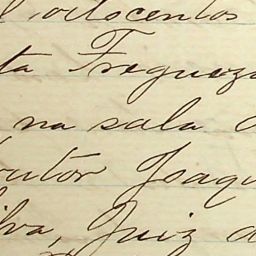 oitocentos
ta Fregueza
na sala
utor Joaqu
ilva, Juiz d